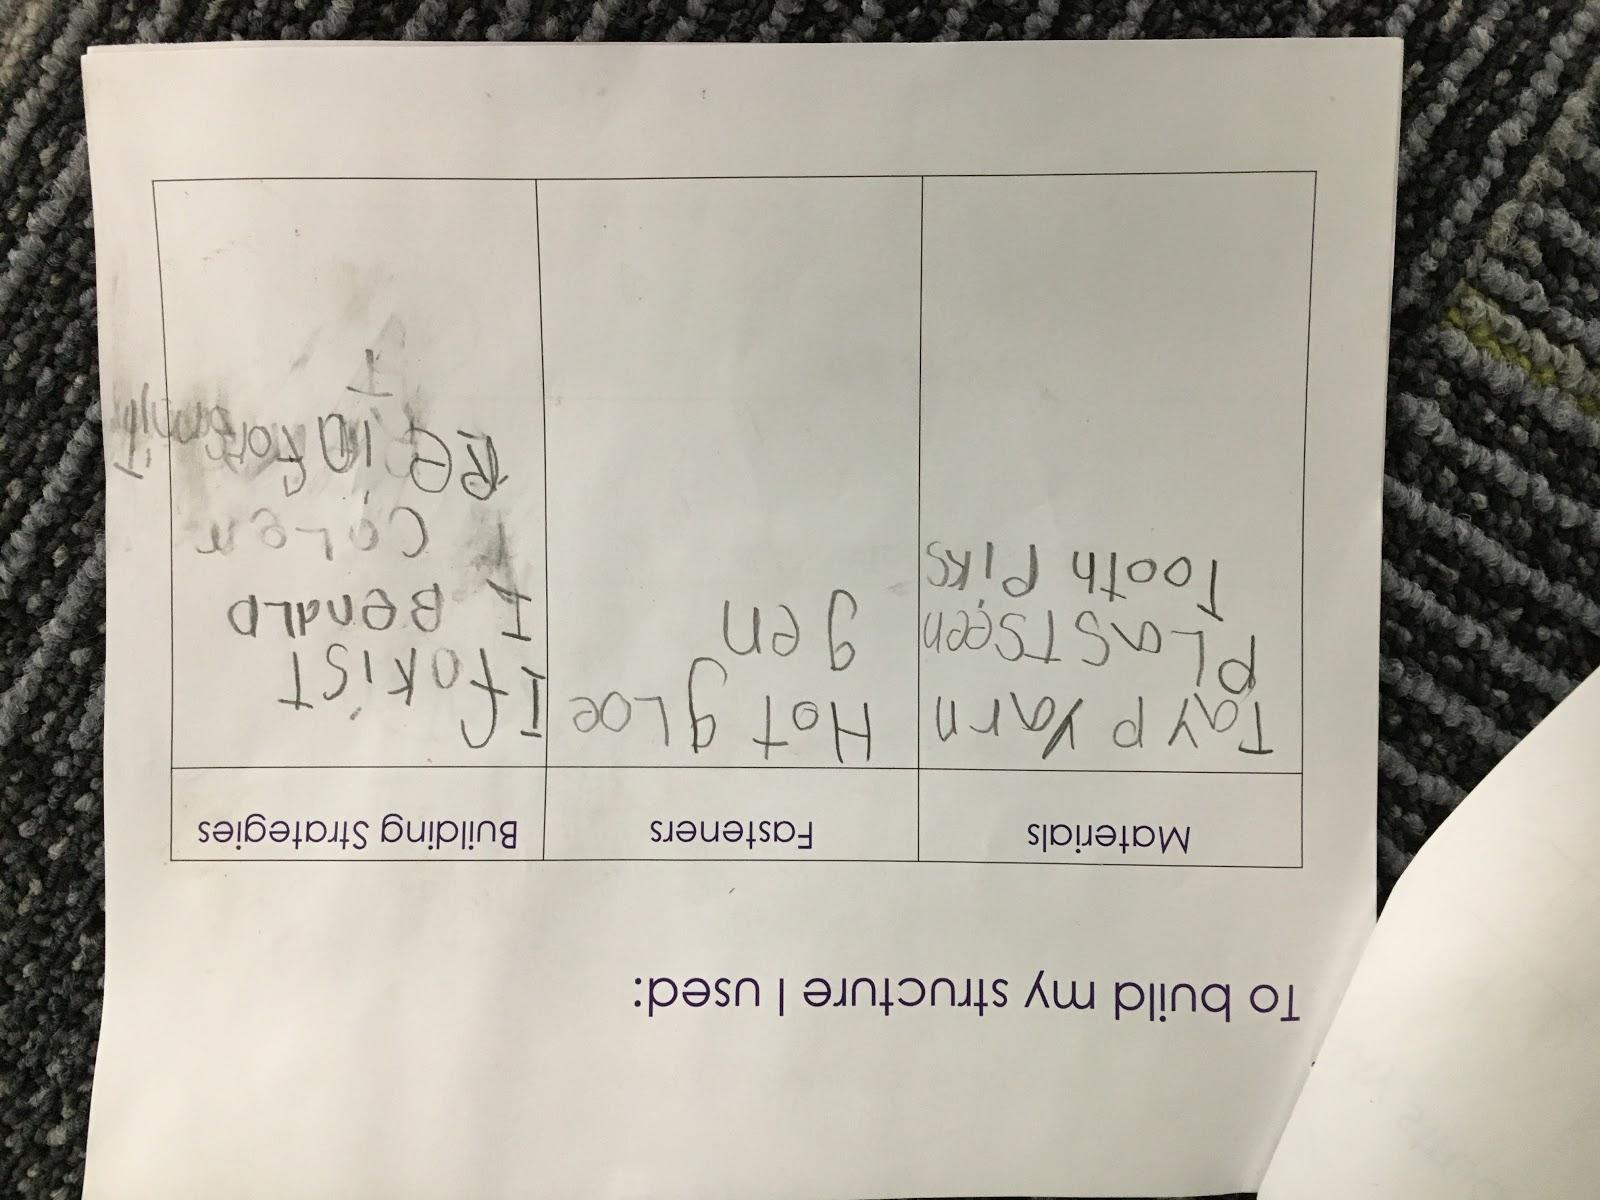 To build my structure I used:
Materials
Fasteners
Building Strategies
Tayp Yarn
PLasTseen
Tooth Piks
Hot gLoe
gen
I foKisT
I BenaLD
I CoLer